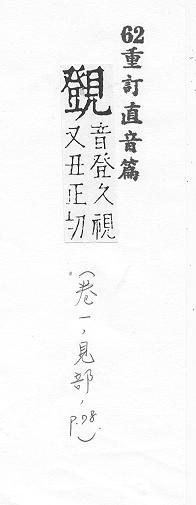 62重訂直音篇
覴
音登久視
又丑正切
(卷一,見部,p.98.)